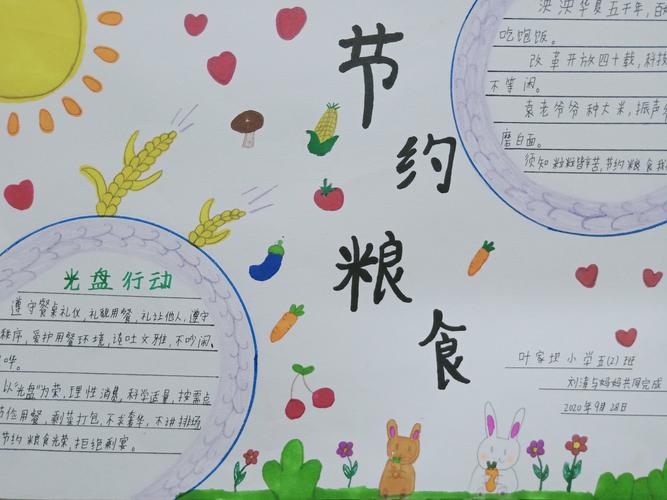 节约粮食
泱泱华夏五千年,百
吃饱饭。
改革开放四十载,科技
不等闲。
袁老爷爷种大米,振声
磨白面。
须知粒粒皆辛苦,节约粮食我
光盘行动
遵守餐桌礼仪,礼貌用餐,礼让他人,遵守
秩序,爱护用餐环境,谈吐文雅,不吵闹、
哗。
以"光盘"为荣,理性消费,科学适量,按需点
节俭用餐,剩菜打包,不求奢华,不讲排场
节约粮食光荣,拒绝剩宴。
叶家坝小学五(2)班
刘清与妈妈共同完成
2020年9月28日